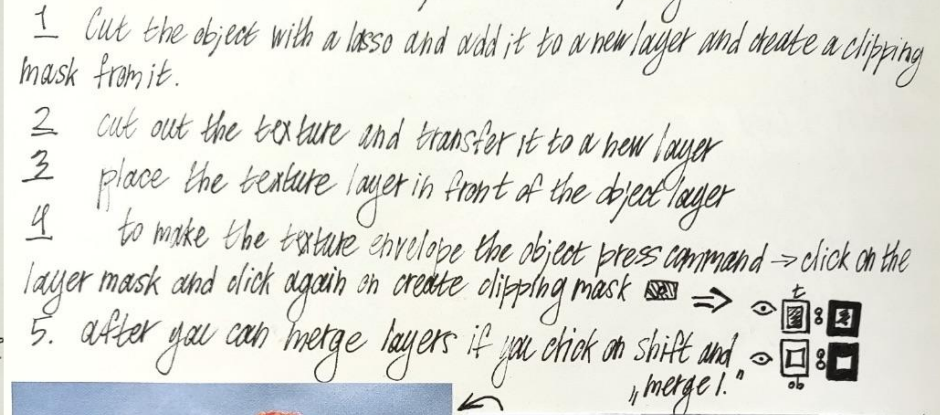 1 Cut the object with a lasso and add it to a new layer and create a clipping
mask from it.
2 cut out the texture and transfer it to a new layer
3 place the texture layer in front of the object layer
4 to make the texture envelope the object press command → click on the
layer mask and click again on create clipping mask ⇒ t
5. after you can merge layers if you click on shift and
„merge l." ob